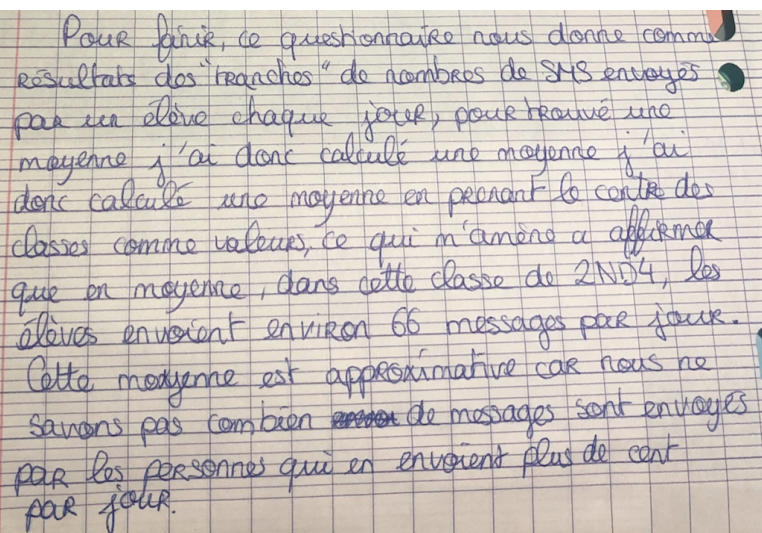 Pour finir, ce questionnaire nous donne comme
résultats des "tranches" de nombres de SMS envoyés
par un élève chaque jour, pour trouvé une
moyenne j'ai donc calculé une moyenne j'ai
donc calculé une moyenne en prenant le centre des
classes comme valeurs, ce qui m'amène a affirmer
que en moyenne, dans cette classe de 2ND4, les
élèves envoient environ 66 messages par jour.
Cette moyenne est approximative car nous ne
savons pas combien de messages sont envoyés
par les personnes qui en envoient plus de cent
par jour.